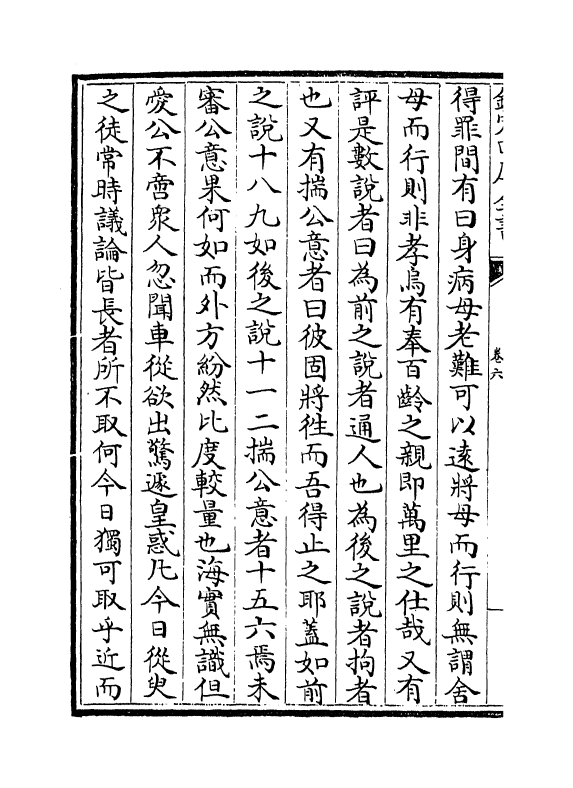 欽定四庫全書
卷六
得罪間有曰身病母老難可以遠將母而行則無謂舍
母而行則非孝烏有奉百齡之親即萬里之仕哉又有
評是數說者曰為前之說者通人也為後之說者拘者
也又有揣公意者曰彼固將徃而吾得止之耶蓋如前
之說十八九如後之說十一二揣公意者十五六焉未
審公意果何如而外方紛然比度較量也海實無識但
愛公不啻衆人忽聞車從欲出驚遽皇惑凡今日從臾
之徒常時議論皆長者所不取何今日獨可取乎近而